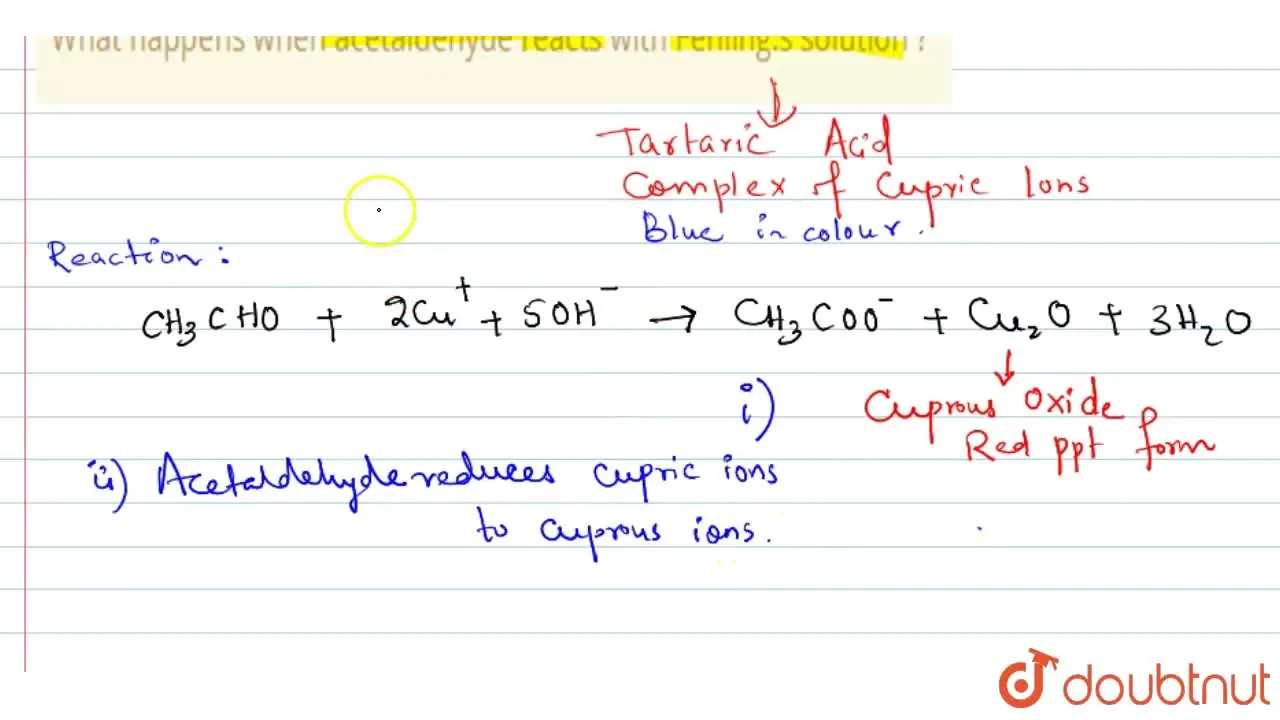 What happens when acetaldehyde reacts with Fehling.s solution ?
Tartaric Acid
Complex of Cupric Ions
Blue in colour.
Reaction:
CH₃CHO + 2Cu⁺ + 5OH⁻ → CH₃COO⁻ + Cu₂O + 3H₂O
i) Cuprous Oxide
Red ppt form
ii) Acetaldehyde reduces cupric ions
to cuprous ions.
doubtnut